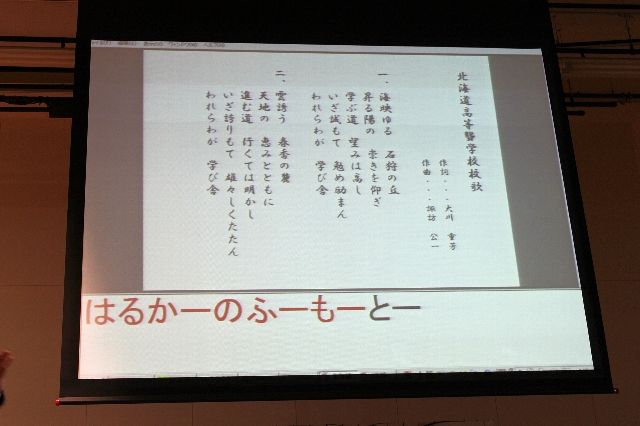 北海道高等聾学校校歌
作詞・・・大川 重芳
作曲・・・諏訪 公一
一、海映ゆる 石狩の丘
昇る陽の 崇きを仰ぎ
学ぶ道 望みは高し
いざ誠もて 勉め励まん
われらわが 学び舎
二、雲誘う 春香の麓
天地の 恵みとともに
進む道 行くては明かし
いざ誇りもて 雄々しくたたん
われらわが 学び舎
はるかーのふーもーとー